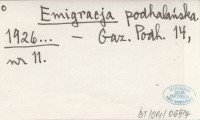 Emigracja podhalańska.
1926... — Gaz. Podh. 14,
nr 11.